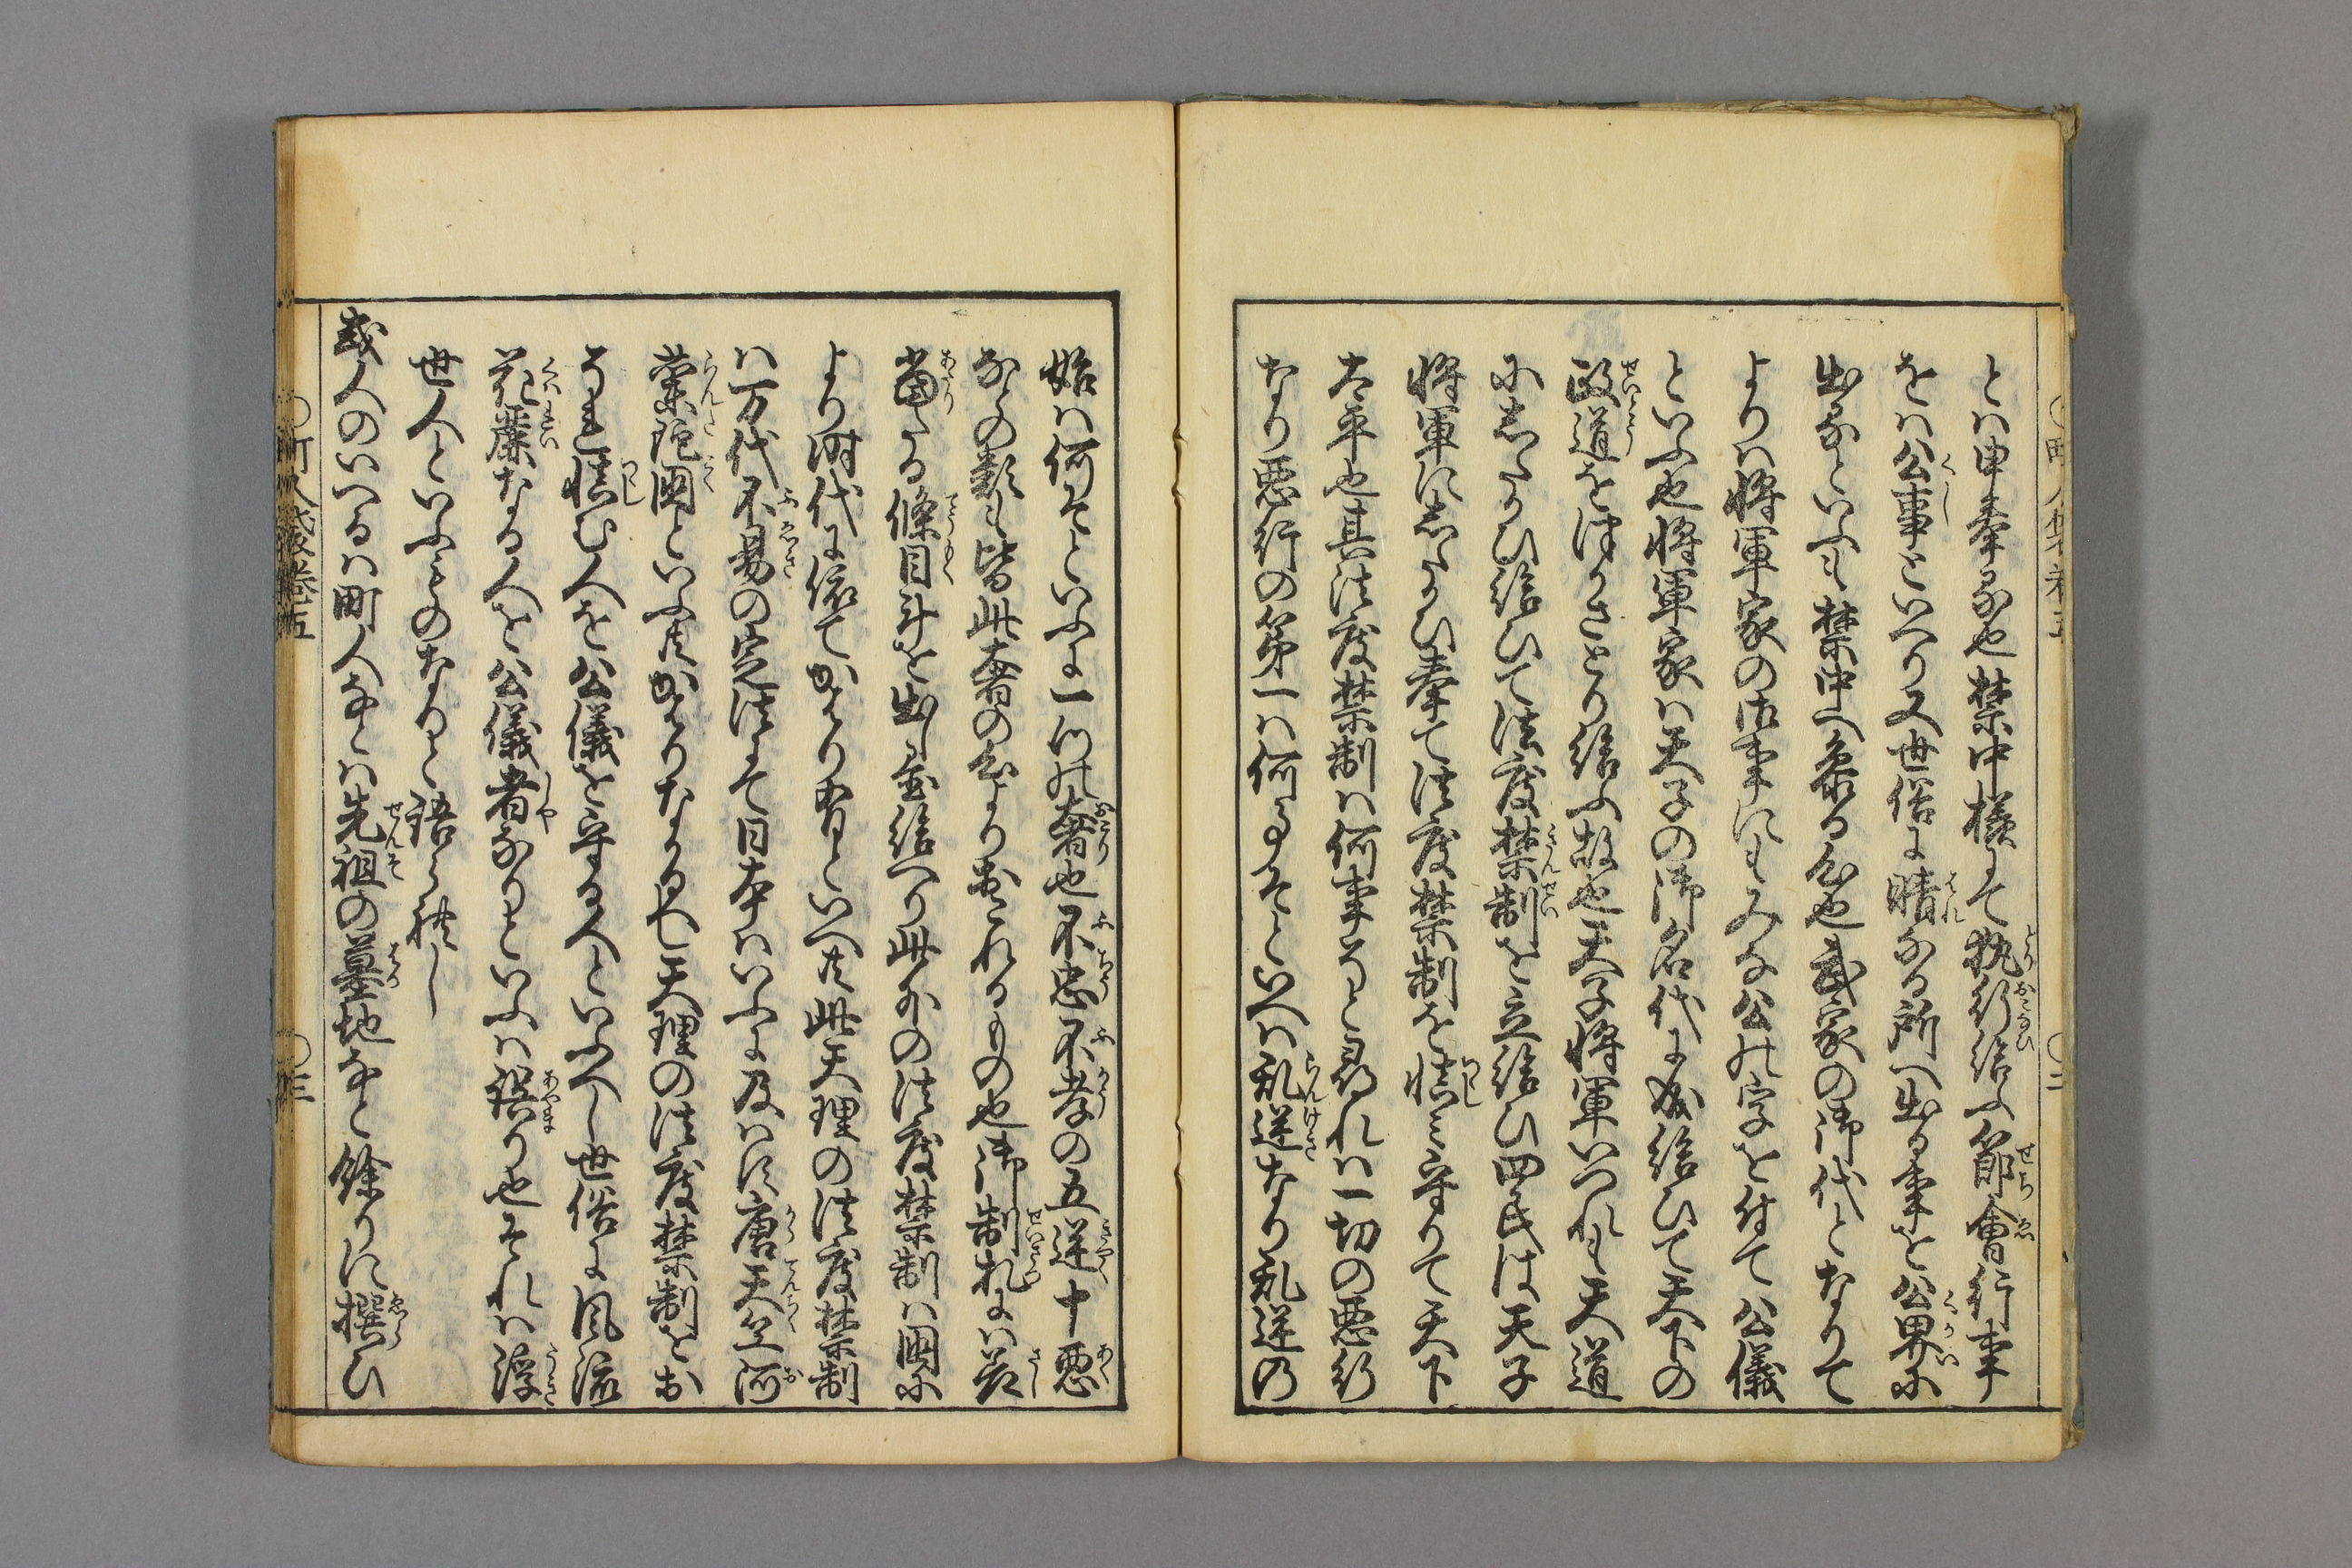 とハ申奉る也禁中様にて執行給ふ節會行事
をハ公事といへり又世俗に晴なる所へ出る事を公界に
出るといふも禁中へ参る心也武家の御代となりて
よりハ将軍家の御事にもみな公の字を付て公儀
といふ也将軍家ハ天子の御名代に成給ひて天下の
政道をはかさとり給ふ故也天子将軍いつれも天道
にしたかひ給ひて法度禁制を立給ひ四民は天子
将軍にしたかひ奉て法度禁制を慎ミ守りて天下
太平也其法度禁制ハ何事そと尋れハ一切の悪行
なり悪行の第一ハ何事そといへハ乱逆なり乱逆の
始ハ何そといふに一つの奢也不忠不孝の五逆十悪
なとの類も皆此奢の心より出来れるもの也御制札にハ差
當たる條目斗を出し置給へり此外の法度禁制ハ國に
より時代に依てかハり有といへ共此天理の法度禁制
ハ万代不易の定法にて日本ハいふに及ハす唐天竺阿
蘭陀國といふ共かハりなる也天理の法度禁制をお
それ慎む人を公儀を守る人といふへし世俗に風流
花麗なる人を公儀者なりといふハ誤り也それハ浮
世人といふものなりと語られし
或人のいへるハ町人なとハ先祖の墓地なと餘りに撰ひ
〇町人嚢巻五
〇三
〇二